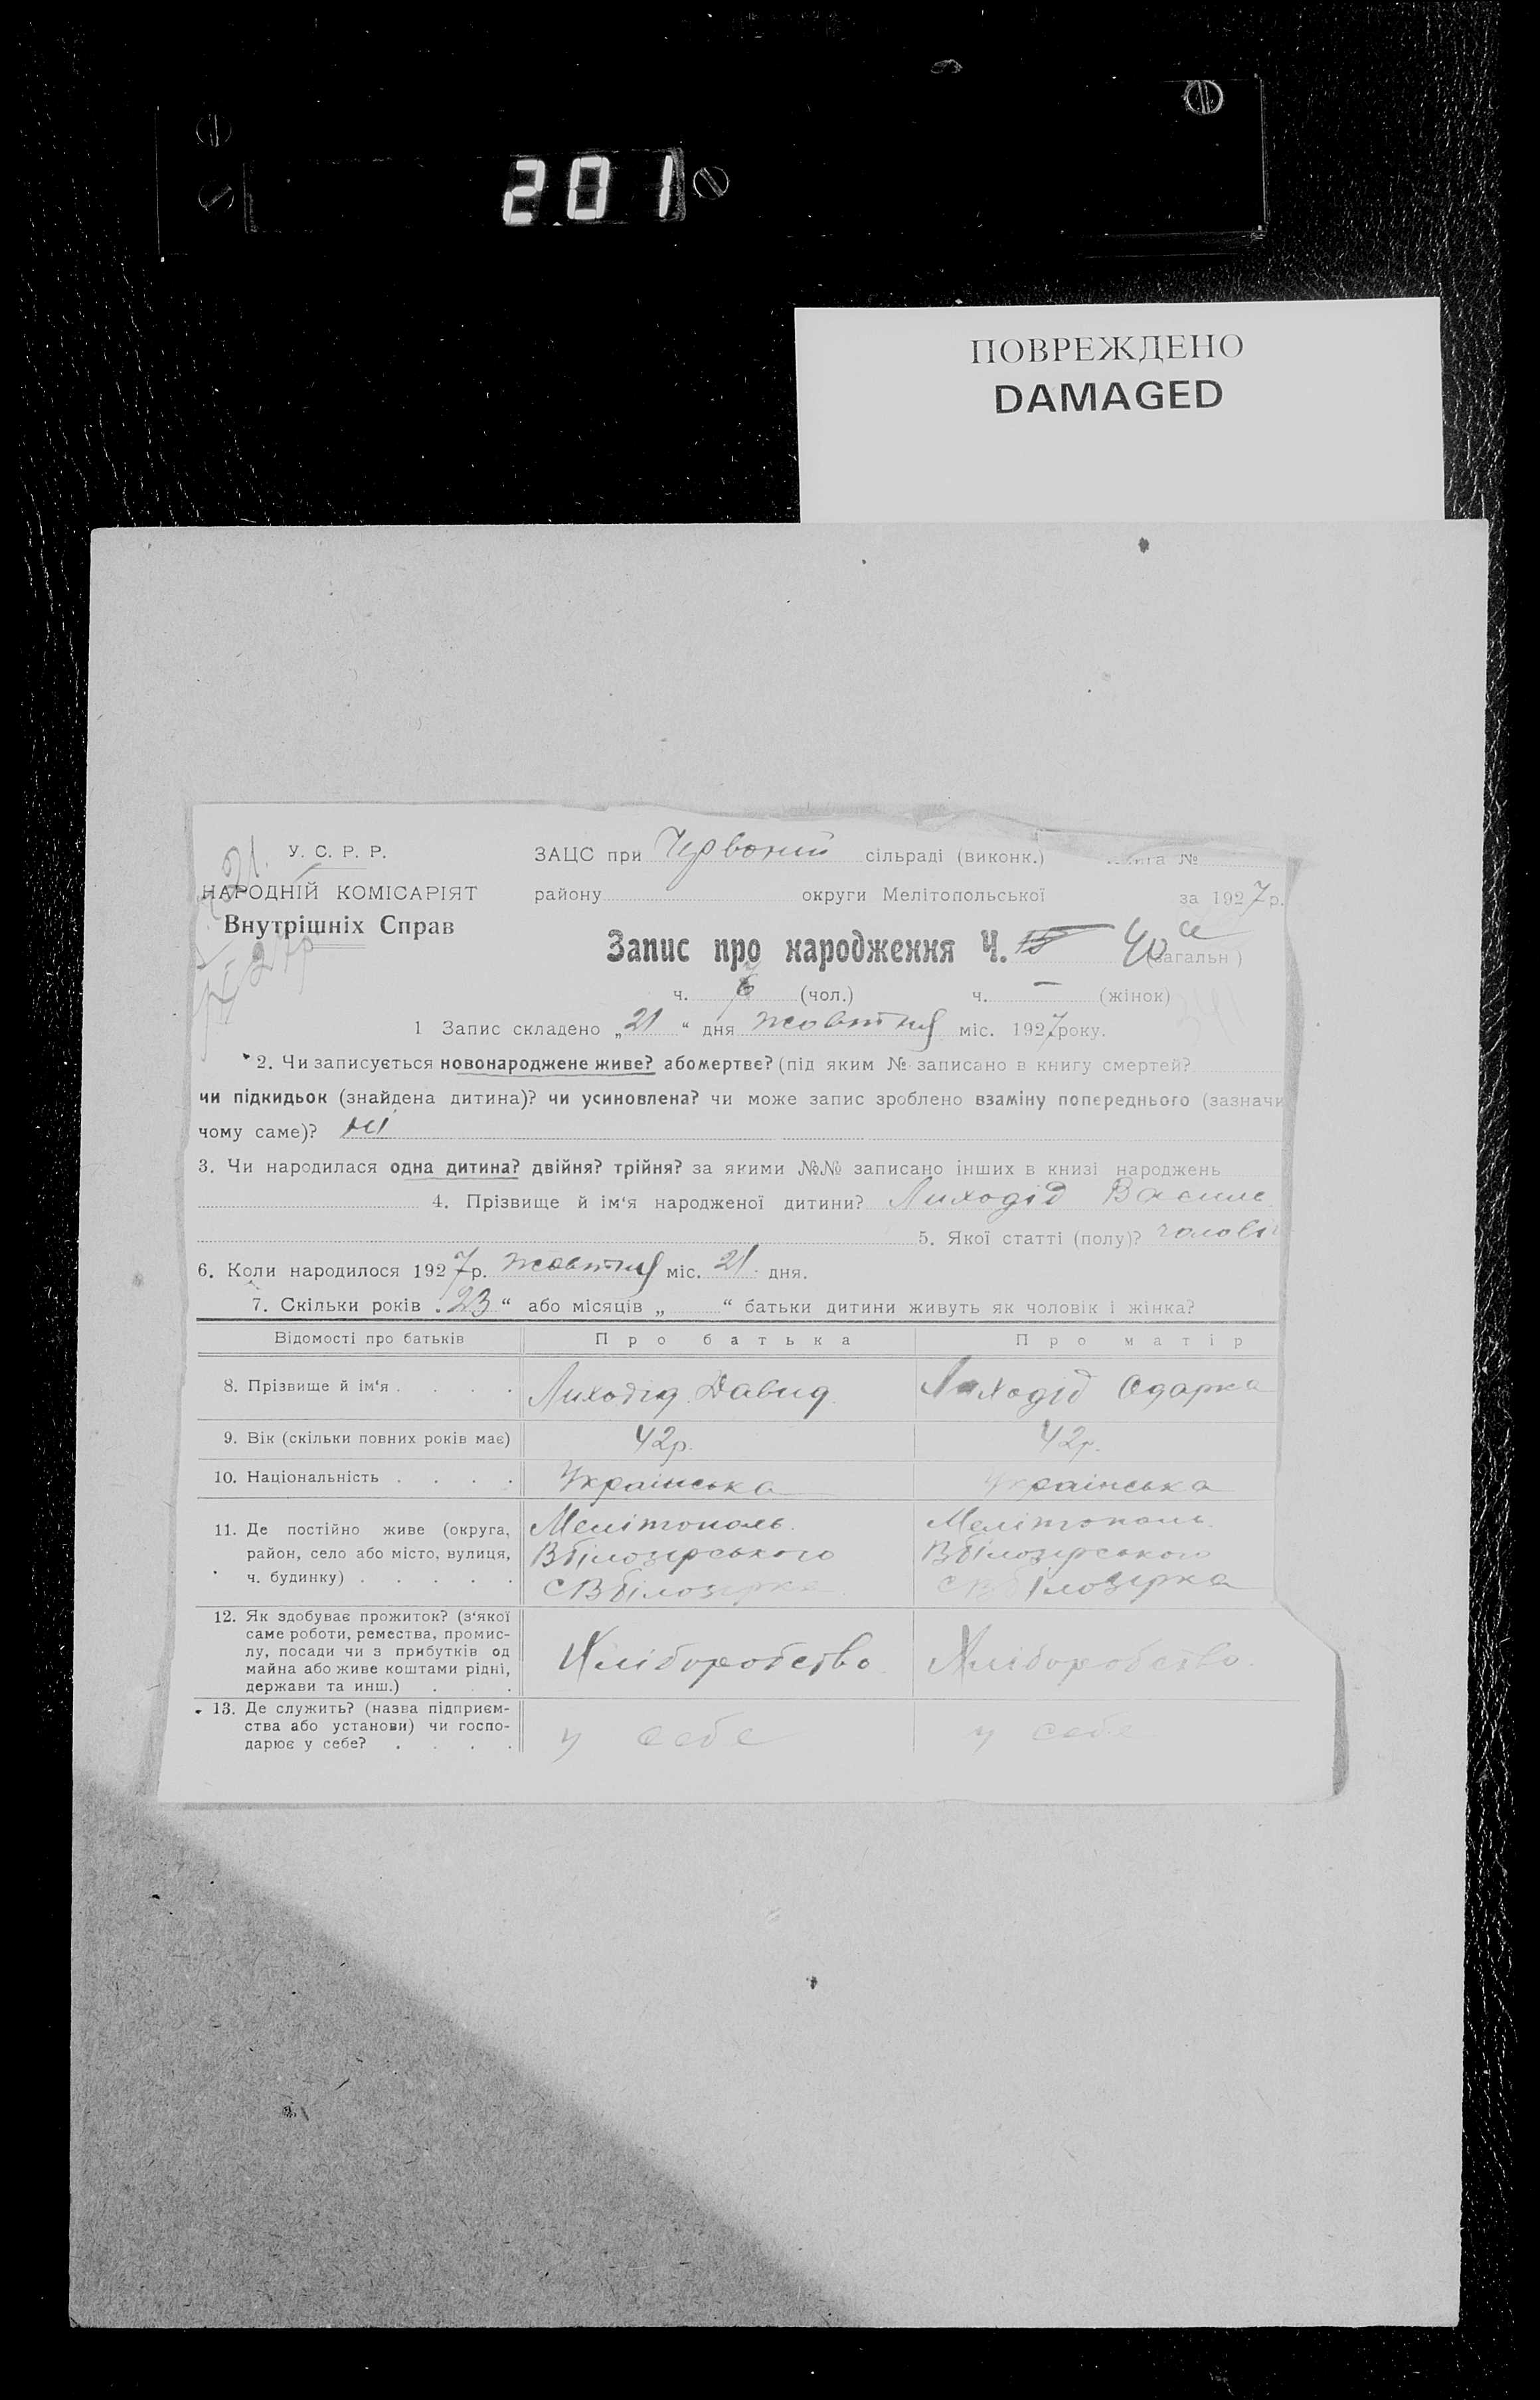 201
ПОВРЕЖДЕНО
DAMAGED
У. С. Р. Р.
НАРОДНІЙ КОМІСАРІЯТ
Внутрішніх Справ
ЗАЦС при Червоній сільраді (виконк.) №
району округи Мелітопольської за 1927 р.
Запис про народження Ч. 40 (загальн)
ч. (чол.) ч. — (жінок)
1 Запис складено „21“ дня жовтня міс. 1927 року.
2. Чи записується новонароджене живе? або мертве? (під яким № записано в книгу смертей?
чи підкидьок (знайдена дитина)? чи усиновлена? чи може запис зроблено взаміну попереднього (зазначи
чому саме)? ні
3. Чи народилася одна дитина? двійня? трійня? за якими №№ записано інших в книзі народжень
4. Прізвище й ім'я народженої дитини? Лиходід Василь
5. Якої статті (полу)? чолові
6. Коли народилося 1927 р. жовтня міс. 21 дня.
7. Скільки років „23“ або місяців „ “ батьки дитини живуть як чоловік і жінка?
Відомості про батьків Про батька Про матір
8. Прізвище й ім'я . . . . Лиходід Давид Лиходід Одарка
9. Вік (скільки повних років має) 42р. 42р.
10. Національність . . . . Українська Українська
11. Де постійно живе (округа, район, село або місто, вулиця, ч. будинку) . . . . .
Мелітополь Мелітополь
В Білозерського В Білозерського
С В Білозерка С В Білозерка
12. Як здобуває прожиток? (з'якої саме роботи, ремества, промислу, посади чи з прибутків од майна або живе коштами рідні, держави та инш.) . . Хліборобство Хліборобство
13. Де служить? (назва підприємства або установи) чи господарює у себе? . . . . у себе у себе